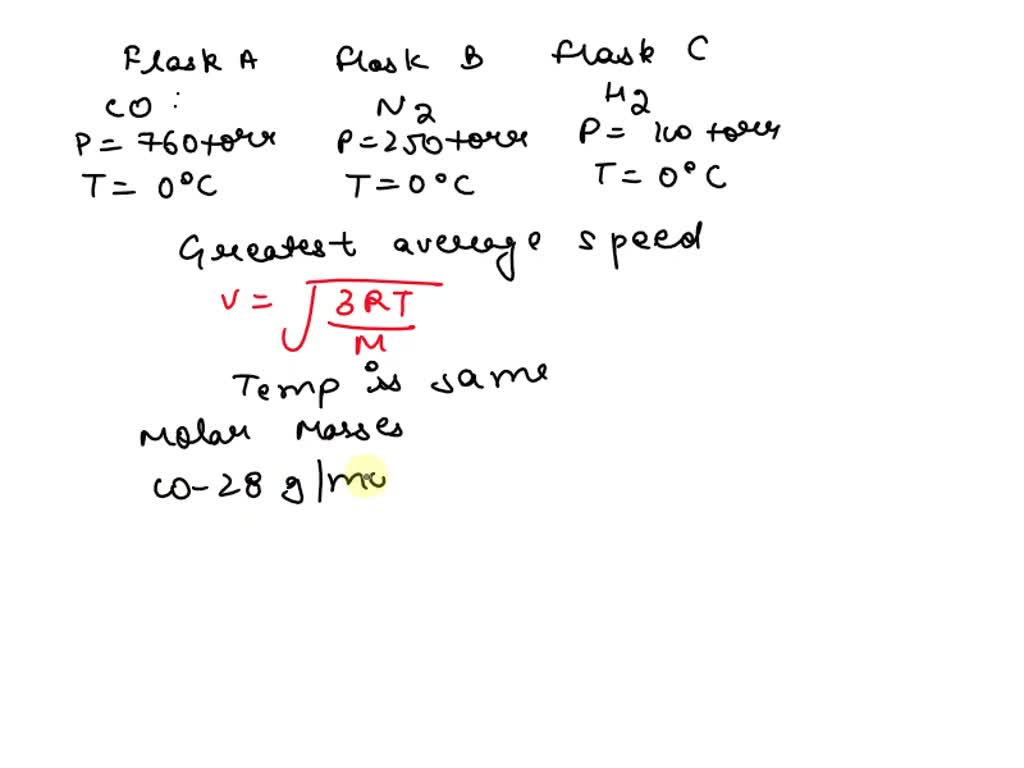 Flask A Flask B Flask C
CO : N2 H2
P = 760 torr P = 250 torr P = 100 torr
T = 0°C T = 0°C T = 0°C
Greatest average speed
v = √3RT/M
Temp is same
Molar Masses
CO - 28 g/mo